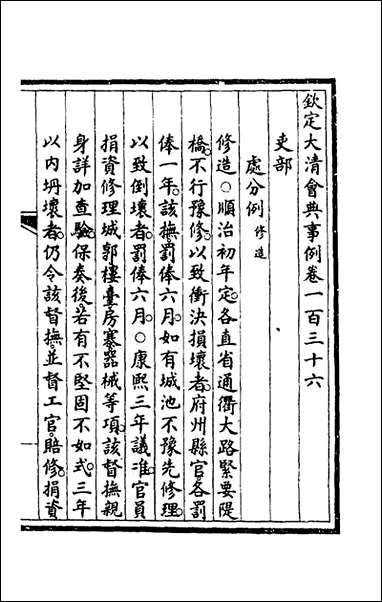 欽定大清會典事例卷一百三十六
吏部
處分例修造
修造○順治初年定各直省通衢大路緊要隄
橋不行豫修以致衝決損壞者府州縣官各罰
俸一年該撫罰俸六月如有城池不豫先修理
以致倒壞者罰俸六月○康熙三年議准官員
捐資修理城郭樓臺房寨器械等項該督撫親
身詳加查驗保奏後若有不堅固不如式三年
以內坍壞者仍令該督撫並督工官賠修捐資